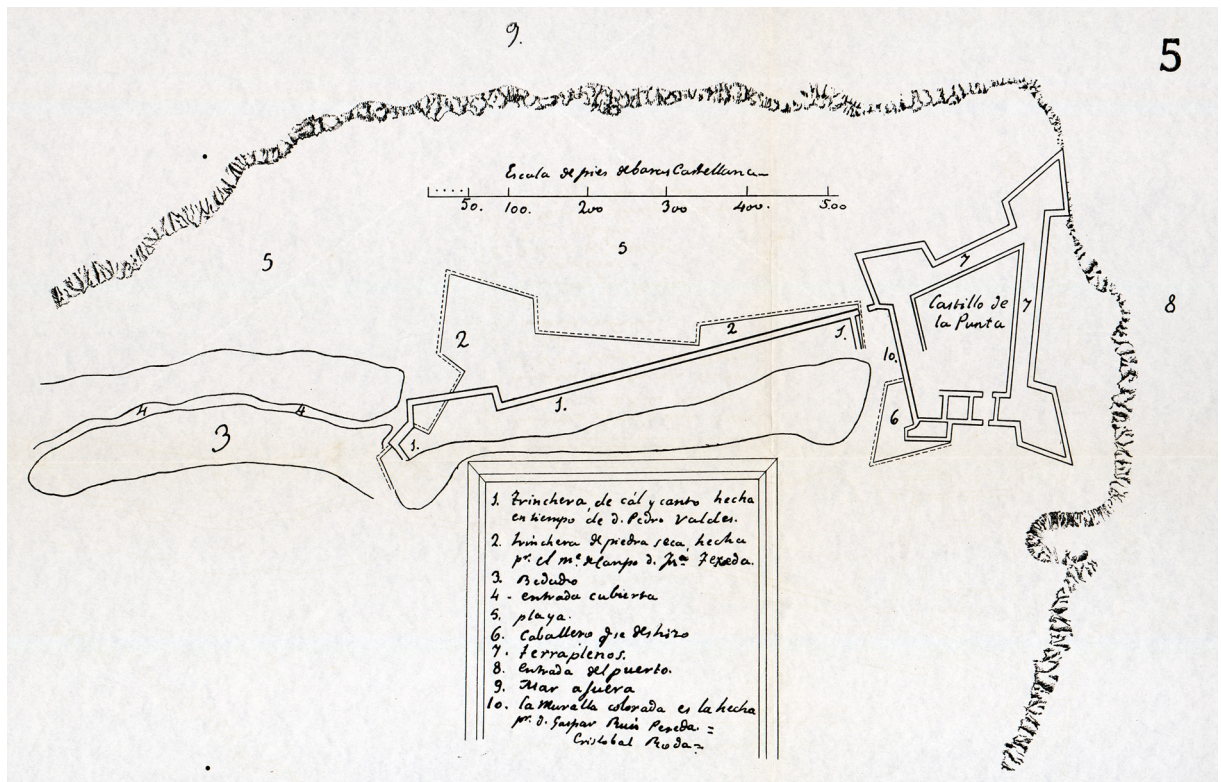 9.
5
Escala de pies de baras Castellana
50. 100. 200 300 400. 500
5
5
7
8
Castillo de
la Punta
7
2
2
1.
10.
1.
6
4
4
3
1.
1. Trinchera, de cál y canto hecha
en tiempo de d. Pedro Valdes.
2. trinchera de piedra seca, hecha
pr. el mº. de Campo d. Juº. Texeda.
3.
4 - entrada cubierta
5. playa.
6. Caballero qse deshizo
7. terraplenos.
8. entrada del puerto.
9. Mar afuera
10. la muralla colorada es la hecha
pr. d. Gaspar Ruis Pereda. =
Cristobal Roda =